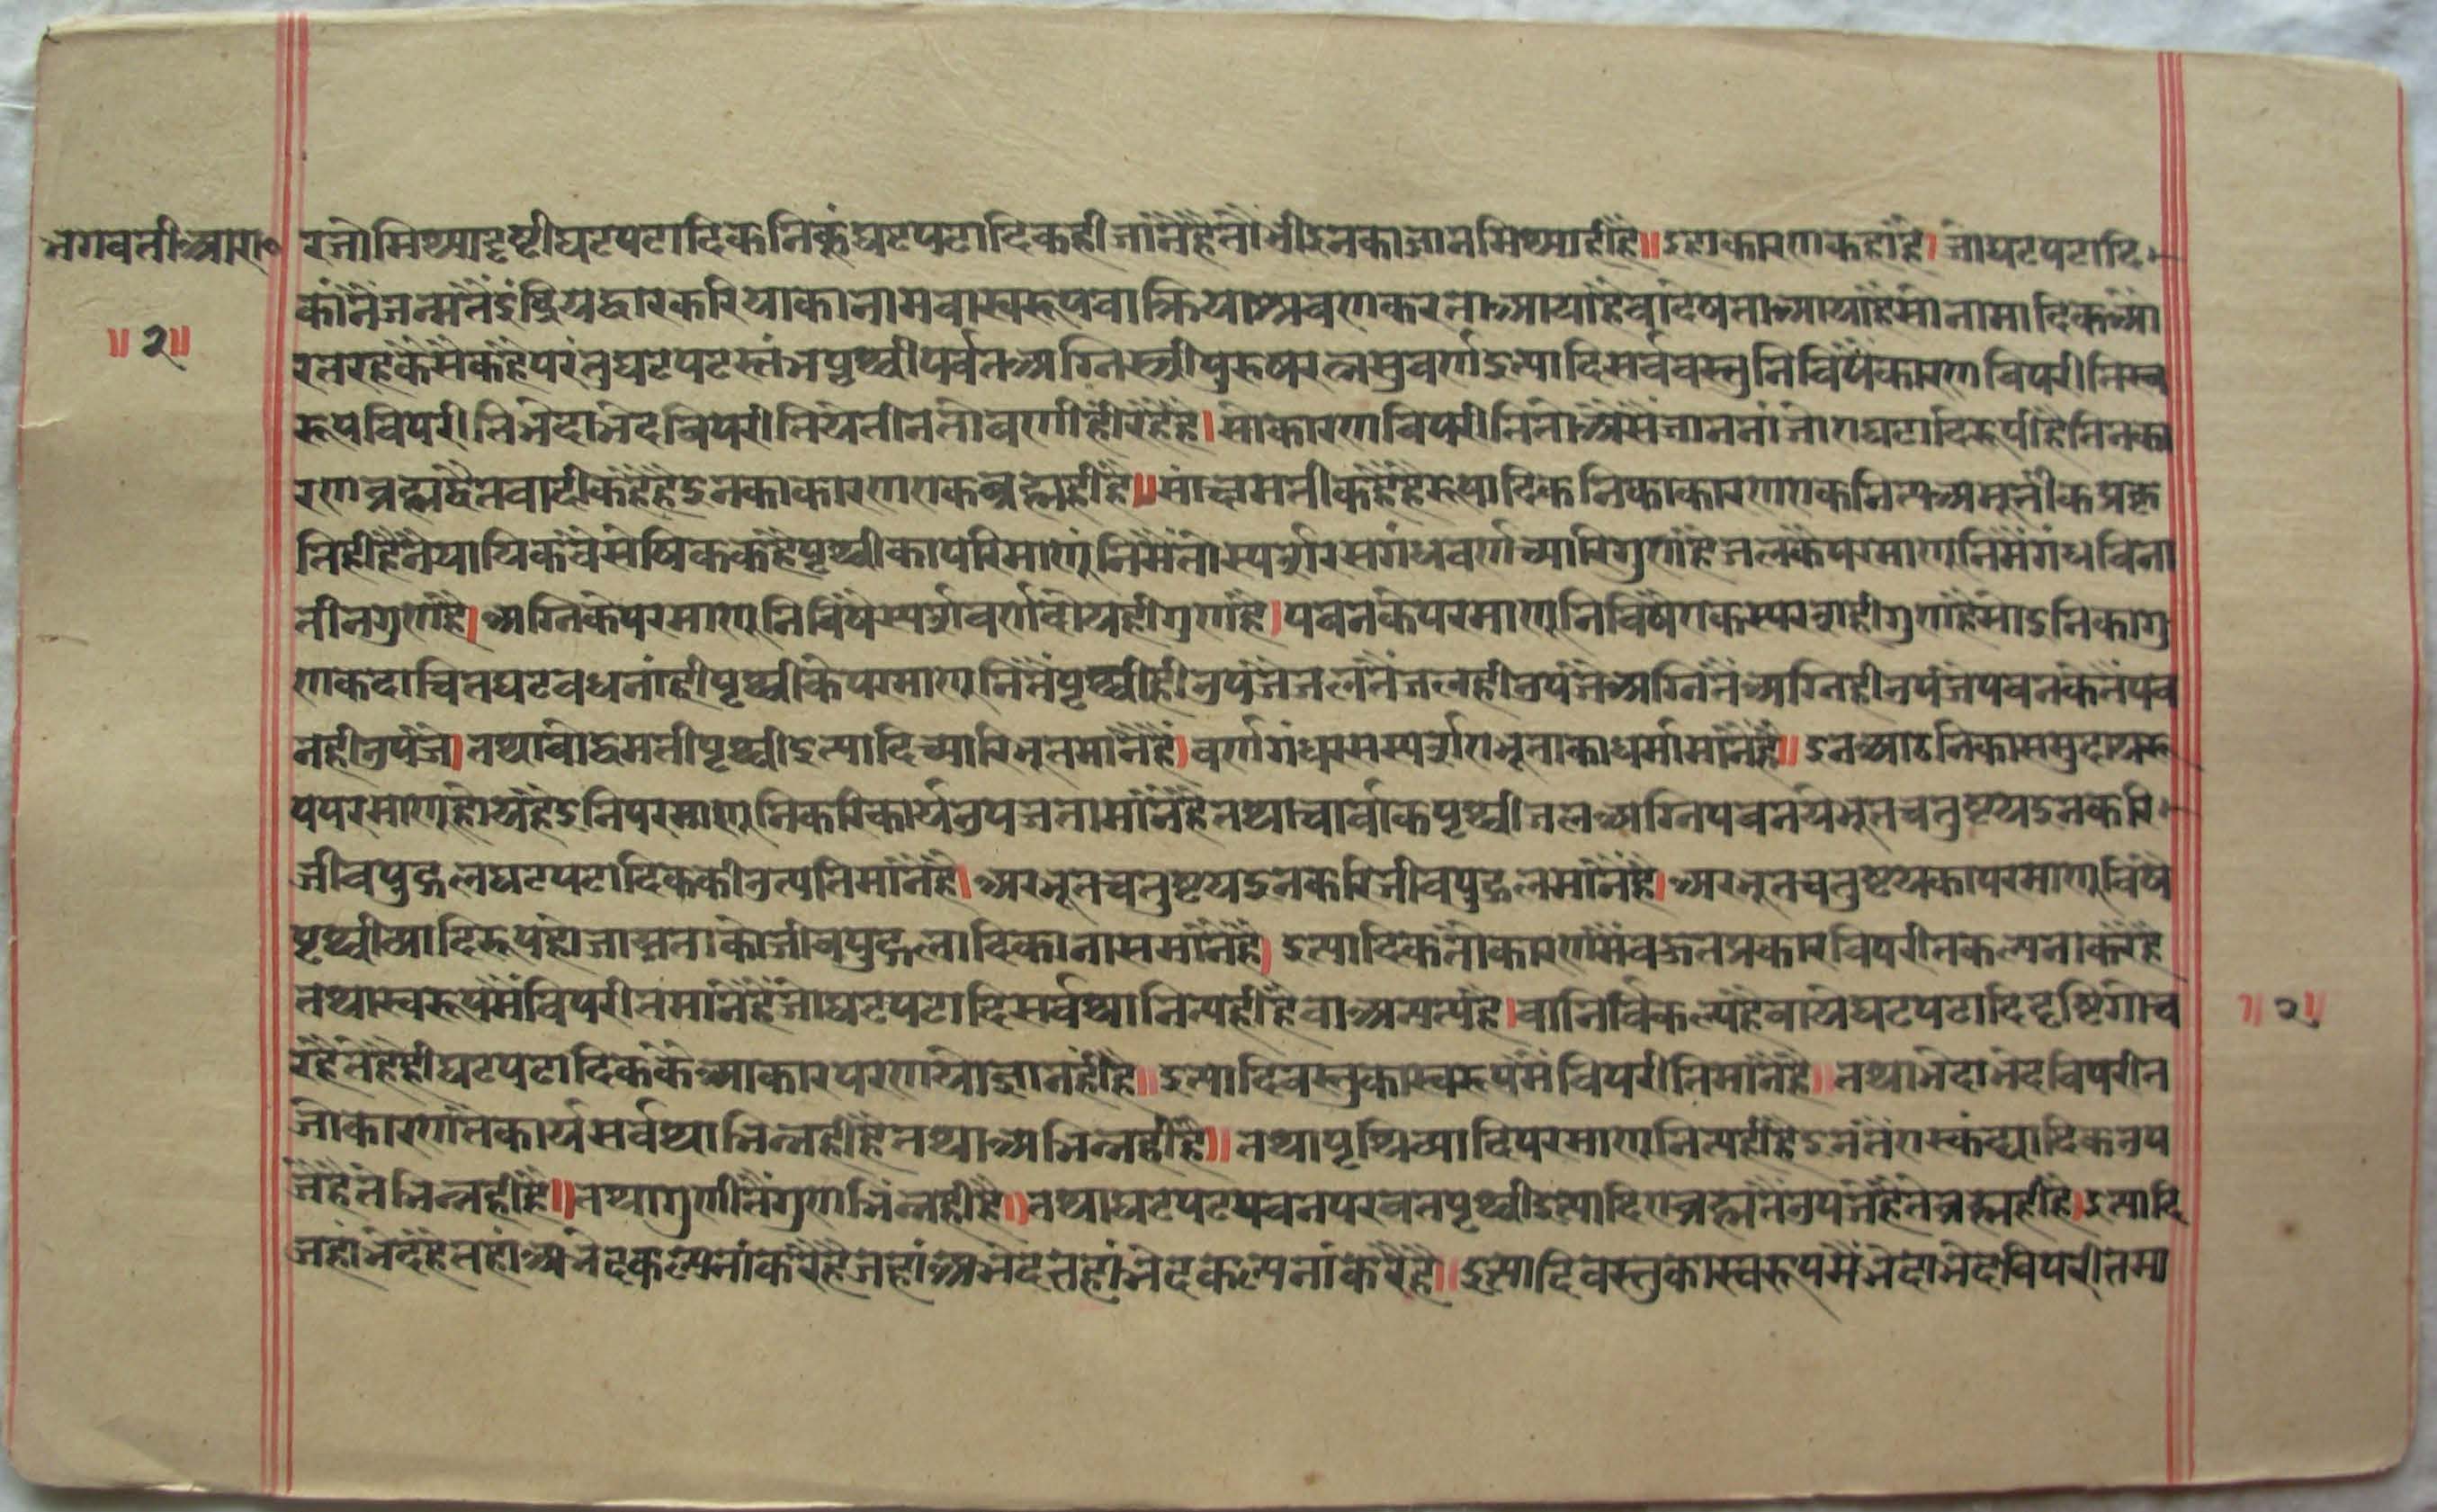 भगवतीआरा॰
॥२॥
रजोमिथ्यादृष्टीघटपटादिकनिकूंघटपटादिकहीजांनैहैतौभीइनकाज्ञानमिथ्याहीहै॥इहाकारणकहाहै।जोघटपटादि
कांनैंजन्मतैंइंद्रियद्वारकरियाकानामवास्वरूपवाक्रियाश्रवणकरताआयाहैवादेषताआयाहैसोनामादिकआ
रतरहकैसैकहैपरंतुघटपटस्तंभपृथ्वीपर्वतअग्निस्त्रीपुरुषरत्नसुवर्णइत्यादिसर्ववस्तुनिविषैंकारणविपरीतिस्व
रूपविपरीतिभेदाभेदविपरीतियेतीनतोवणीहीरहैहै।सोकारणविपरीतितोअैसेंजाननांजोएघटादिरूपीहैतिनका
रणब्रह्माद्वैतवादीकहैहैइनकाकारणएकब्रह्महीहै॥सांख्यमतीकहैहैरूपादिकनिकाकारणएकनित्यअमूर्तीकप्रकृ
तिहीहैनैयायिकवैसेषिककहैपृथ्वीकापरिमाणुंनिमैंतोस्पर्शरसगंधवर्णच्यारिगुणहैजलकेपरमाणुनिमैंगंधविना
तीनगुणहै।अग्निकेपरमाणुनिविषैस्पर्शवर्णदोयहीगुणहै।पवनकेपरमाणुनिविषैएकस्पर्शहीगुणहैसोइनिकागु
णकदाचितघटवधनांहीपृथ्वीकेपरमाणुनितैंपृथ्वीहीउपजेजलतैंजलहीउपजैअग्नितैंअग्निहीउपजेपवनकेतैंपव
नहीउपजे।तथाबोद्धमतीपृथ्वीइत्यादिच्यारिभूतमांनैहैं।वर्णगंधरसस्पर्शएभूतांकाधर्ममांनैहै॥इनआठनिकासमुदायरू
पपरमाणुहोयहैइनिपरमाणुनिकरिकार्यउपजतामांनैहैतथाचार्वाकपृथ्वीजलअग्निपवनयेभूतचतुष्टयइनकरि
जीवपुद्गलघटपटादिककीउत्पतिमांनैहै।अरभूतचतुष्टयइनकरिजीवपुद्गलमांनैहै।अरभूतचतुष्टयकापरमाणुविषै
पृथ्वीआदिरूपहोजायनाकोजीवपुद्गलादिकानासमांनैहै।इत्यादिकतोकारणमैंबऊतप्रकारविपरीतकल्पनाकरैहै
तथास्वरूपमैंविपरीतमांनैहैजोघटपटादिसर्वथानित्यहीहैवाअनित्यहै।वानिर्विकल्पहैवायेघटपटादिदृष्टिगोच
रहैतेहैहीघटपटादिककेआकारपरणयोज्ञानहीहै॥इत्यादिवस्तुकास्वरूपमैंविपरीतिमांनैहै॥तथाभेदाभेदविपरीत
जोकारणतैंकार्यसर्वथाभिन्नहीहैतथाअभिन्नहीहै॥तथापृथिव्यादिपरमाणुनित्यहीहैइनतैंएस्कंधादिकउप
जेहैतेभिन्नहीहै॥तथागुणीतैंगुणभिंन्नहीहै॥तथाघटपटपवनपरवतपृथ्वीइत्यादिएब्रह्मतैंउपजेहैतेब्रह्महीहै।इत्यादि
जहांभेदहैतहांअभेदकल्पनांकरैहैजहांअभेदतहांभेदकल्पनांकरैहै॥इत्यादिवस्तुकास्वरूपमैंभेदाभेदविपरीतमा
॥२॥